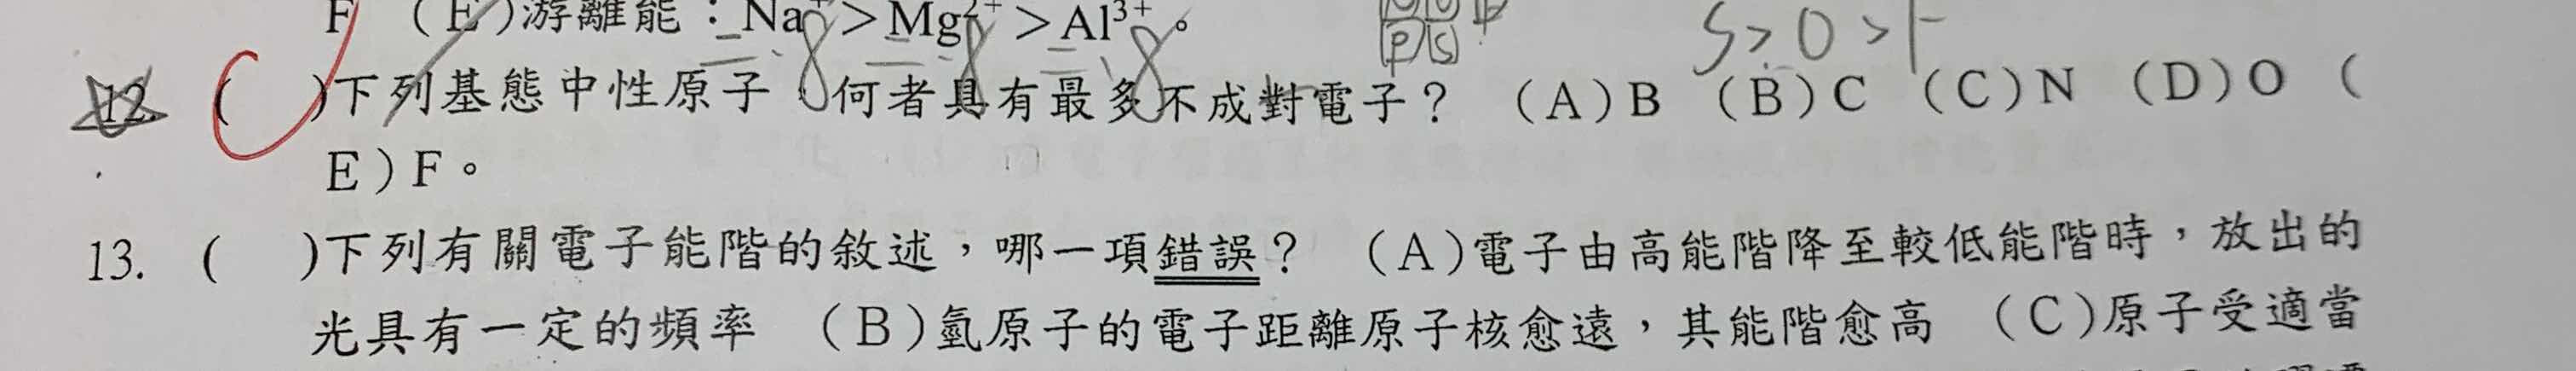 F （E）游離能：Na⁺＞Mg²⁺＞Al³⁺。
S > O > F
P S
12. （C）下列基態中性原子，何者具有最多不成對電子？ （A）B （B）C （C）N （D）O （
E）F。
13. （ ）下列有關電子能階的敘述，哪一項錯誤？ （A）電子由高能階降至較低能階時，放出的
光具有一定的頻率 （B）氫原子的電子距離原子核愈遠，其能階愈高 （C）原子受適當